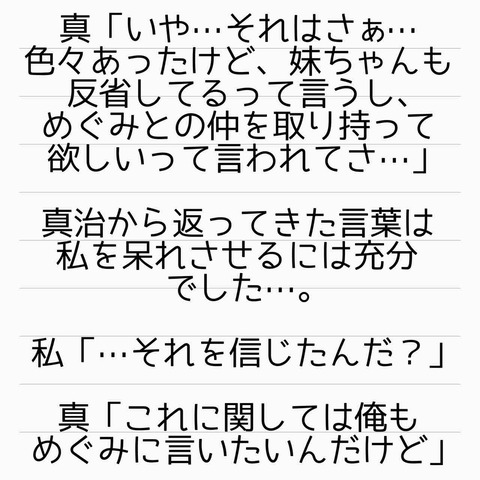 真「いや…それはさぁ…
色々あったけど、妹ちゃんも
反省してるって言うし、
めぐみとの仲を取り持って
欲しいって言われてさ…」
真治から返ってきた言葉は
私を呆れさせるには充分
でした…。
私「…それを信じたんだ？」
真「これに関しては俺も
めぐみに言いたいんだけど」